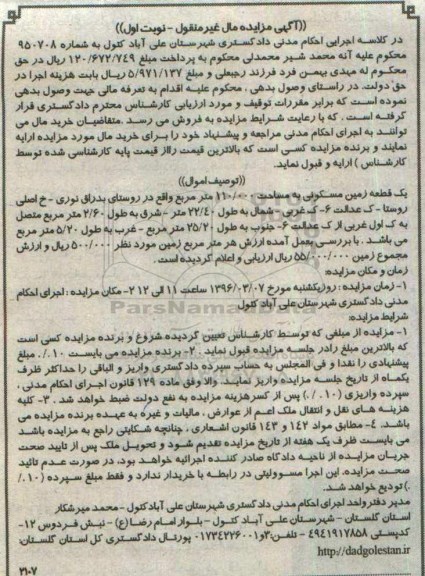 ((آگهی مزایده مال غیرمنقول - نوبت اول))
در کلاسه اجرایی احکام مدنی دادگستری شهرستان علی آباد کتول به شماره ۹۵۰۷۰۸
محکوم علیه آنه محمد شیر محمدلی محکوم به پرداخت مبلغ ۱۲۰/۶۷۲/۷۴۹ ریال در حق
محکوم له مهدی بهمن فرد فرزند رجبعلی و مبلغ ۵/۹۷۱/۱۳۷ ریال بابت هزینه اجرا در
حق دولت، در راستای وصول بدهی ، محکوم علیه اقدام به تعرفه مالی جهت وصول بدهی
نموده است که برابر مقررات توقیف و مورد ارزیابی کارشناس محترم دادگستری قرار
گرفته است ، که با رعایت شرایط مزایده به فروش می رسد .متقاضیان خرید مال می
توانند به اجرای احکام مدنی مراجعه و پیشنهاد خود را برای خرید مال مورد مزایده ارایه
نمایند و برنده مزایده کسی است که بالاترین قیمت رااز قیمت پایه کارشناسی شده توسط
کارشناس ) ارایه و قبول نماید.
((توصیف اموال))
یک قطعه زمین مسکونی به مساحت ۱۱۰/۰۰ متر مربع واقع در روستای بدراق نوری - خ اصلی
روستا - ک عدالت ۶- ک غربی - شمال به طول ۲۲/۴۰ متر - شرق به طول ۲/۶۰ متر مربع متصل
به ک اول غربی از ک عدالت ۶- جنوب به طول ۲۵/۲۰ متر مربع - غرب به طول ۵/۲۰ متر مربع
می باشد . با بررسی بعمل آمده ارزش هر متر مربع زمین مورد نظر ۵۰۰/۰۰۰ ریال و ارزش
مجموع زمین ۵۵/۰۰۰/۰۰۰ ریال ارزیابی و اعلام گردیده است .
زمان و مکان مزایده:
۱- زمان مزایده : روزیکشنبه مورخ ۱۳۹۶/۰۳/۰۷ ساعت ۱۱ الی ۱۲ ۲- مکان مزایده : اجرای احکام
مدنی دادگستری شهرستان علی آباد کتول
شرایط مزایده:
۱- مزایده از مبلغی که توسط کارشناس تعیین گردیده شروع و برنده مزایده کسی است
که بالاترین مبلغ رادر جلسه مزایده قبول نماید . ۲- برنده مزایده می بایست ۱۰٪. مبلغ
پیشنهادی را نقدا و فی المجلس به حساب سپرده دادگستری واریز و الباقی را حداکثر ظرف
یکماه از تاریخ جلسه مزایده واریز نماید. والا وفق ماده ۱۲۹ قانون اجرای احکام مدنی ،
سپرده واریزی (۱۰ ٪.) پس از کسرهزینه مزایده به نفع دولت ضبط خواهد شد . ۳- کلیه
هزینه های نقل و انتقال ملک اعم از عوارض ، مالیات و غیره به عهده برنده مزایده می
باشد. ۴- مطابق مواد ۱۴۲ و ۱۴۳ قانون اشعاری ، چنانچه شکایتی راجع به مزایده باشد
می بایست ظرف یک هفته از تاریخ مزایده تقدیم شود و تحویل ملک پس از تایید صحت
جریان مزایده از ناحیه دادگاه صادر کننده اجرائیه خواهد بود، در صورت عدم تائید
صحت مزایده، این اجرا مسوولیتی در رابطه با خریدار ندارد و فقط مبلغ سپرده (۱۰٪
.) تودیع خواهد شد.
مدیر دفتر واحد اجرای احکام مدنی دادگستری شهرستان علی آبادکتول - محمد میرشکار
استان گلستان - شهرستان علی آباد کتول - بلوار امام رضا (ع) - نبش فردوس ۱۲-
کدپستی ۴۹۴۱۹۱۷۸۵۸ - تلفن: ۳و۰۱۷۳۴۲۲۶۰۰۱ پورتال دادگستری کل استان گلستان:
http://dadgolestan.ir
۲۱۰۷
ParsNamadData